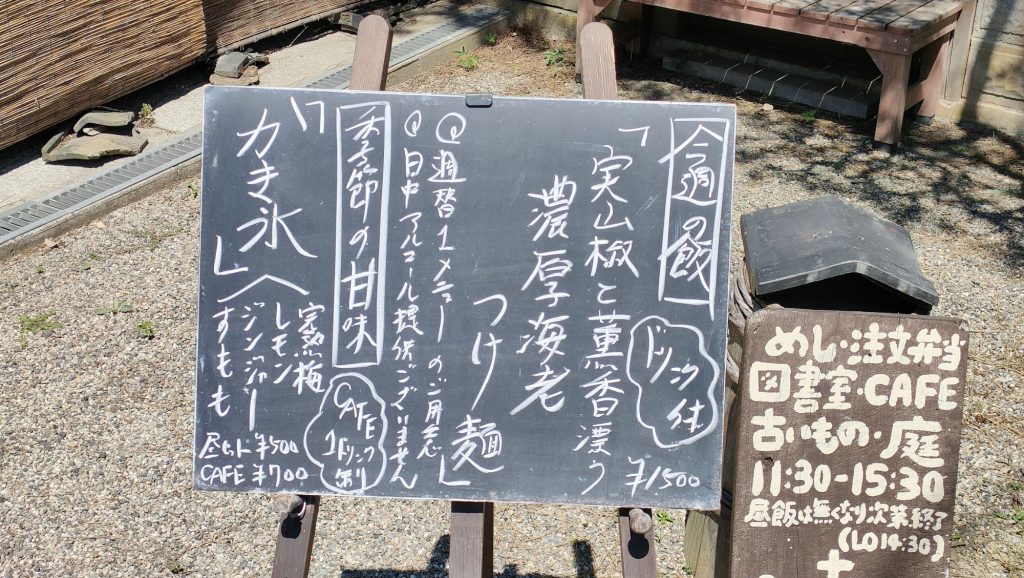 今週の飯
ドリンク付
「実山椒と薫香漂う
濃厚海老
つけ麺」
¥1,500
◎週替1メニューのご用意
◎日中アルコール提供ございません
季節の甘味
CAFE
1ドリンク
制り
「かき氷」
完熟梅
レモン
ジンジャー
すもも
昼セット ¥500
CAFE ¥700
めし・注文弁当
図書室・CAFE
古いもの・庭
11:30-15:30
昼飯は無くなり次第終了
(LO14:30)